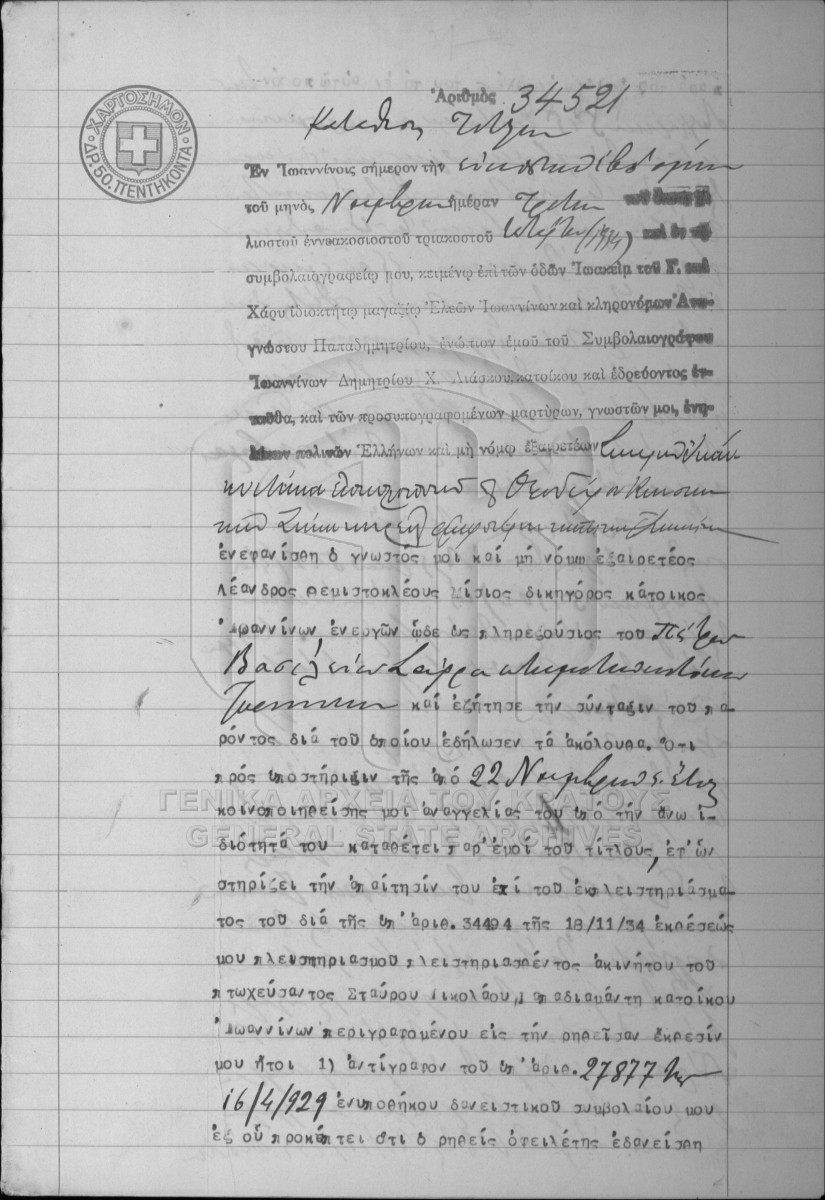 ΧΑΡΤΟΣΗΜΟΝ
ΔΡ. 50. ΠΕΝΤΗΚΟΝΤΑ
Ἀριθμὸς 34521
Κατάθεσις Τίτλων
Ἐν Ἰωαννίνοις σήμερον τὴν εἰκοστὴν ἑβδόμην
τοῦ μηνὸς Νοεμβρίου ἡμέραν Τρίτην τοῦ ἔτους χι-
λιοστοῦ ἐννεακοσιοστοῦ τριακοστοῦ τετάρτου (1934) καὶ ἐν τῷ
συμβολαιογραφείῳ μου, κειμένῳ ἐπὶ τῶν ὁδῶν Ἰωακεὶμ τοῦ Γ. καὶ
Χάρυ ἰδιοκτήτῳ μαγαζίῳ Ἐλεῶν Ἰωαννίνων καὶ κληρονόμων Ἀνα-
γνώστου Παπαδημητρίου, ἐνώπιον ἐμοῦ τοῦ Συμβολαιογράφου
Ἰωαννίνων Δημητρίου Χ. Λιάσκου, κατοίκου καὶ ἑδρεύοντος ἐν-
ταῦθα, καὶ τῶν προσυπογραφομένων μαρτύρων, γνωστῶν μοι, ἐνη-
λίκων πολιτῶν Ἑλλήνων καὶ μὴ νόμῳ ἐξαιρετέων
Θεοδώρου
ἐνεφανίσθη ὁ γνωστός μοι καί μή νόμω ἐξαιρετέος
Λέανδρος Θεμιστοκλέους Μίσιος δικηγόρος κάτοικος
Ἰωαννίνων, ἐνεργῶν ὧδε ὡς πληρεξούσιος τοῦ Πέτρου
Βασιλείου Σάρρα
καί ἐζήτησε τήν σύνταξιν τοῦ πα-
ρόντος διά τοῦ ὁποίου ἐδήλωσεν τά ἀκόλουθα. Ὅτι
πρός ὑποστήριξιν τῆς ἀπό 22 Νοεμβρίου ἔ. ἔτους
κοινοποιηθείσης μοι ἀναγγελίας τοῦ ὑπό τήν ἄνω ἰ
διότητά του καταθέτει παρ'ἐμοί τοῦ τίτλους, ἐφ'ὧν
στηρίζει τήν ἀπαίτησίν του ἐπί τοῦ ἐκπλειστηριάσμα-
τος τοῦ διά τῆς ὑπ'ἀριθ. 34494 τῆς 18/11/34 ἐκθέσεώς
μου πλειστηριασμοῦ πλειστηριασθέντος ἀκινήτου τοῦ
πτωχεύσαντος Σταύρου Νικολάου Παπαδιαμάντη κατοίκου
Ἰωαννίνων περιγραφομένου εἰς τήν ρηθεῖσαν ἔκθεσίν
μου ἤτοι 1) ἀντίγραφον τοῦ ὑπ'ἀριθ. 27877 τῆς
16/4/929 ἐνυποθήκου δανειστικοῦ συμβολαίου μου
ἐξ οὗ προκύπτει ὅτι ὁ ρηθείς ὀφειλέτης ἐδανείσθη
ΓΕΝΙΚΑ ΑΡΧΕΙΑ ΤΟΥ ΚΡΑΤΟΥΣ
GENERAL STATE ARCHIVES